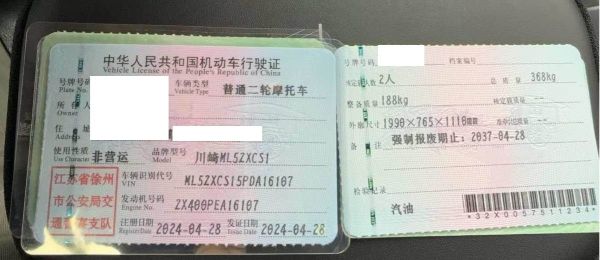 中华人民共和国机动车行驶证
Vehicle License of the People's Republic of China
号牌号码 Plate No. 车辆类型 Vehicle Type 普通二轮摩托车
所有人 Owner
住址 Address
使用性质 Use Character 非营运 品牌型号 Model 川崎ML5ZXCS1
江苏省徐州市公安局交通警察支队
车辆识别代号 VIN ML5ZXCS15PDA16107
发动机号码 Engine No. ZX400PEA16107
注册日期 Register Date 2024-04-28 发证日期 Issue Date 2024-04-28
号牌号码 档案编号
核定载人数 2人 总质量 368kg
整备质量 188kg 核定载质量 --
外廓尺寸 1990×765×1110mm --
备注 强制报废期止:2037-04-28
检验记录
汽油
*32X0057511234*